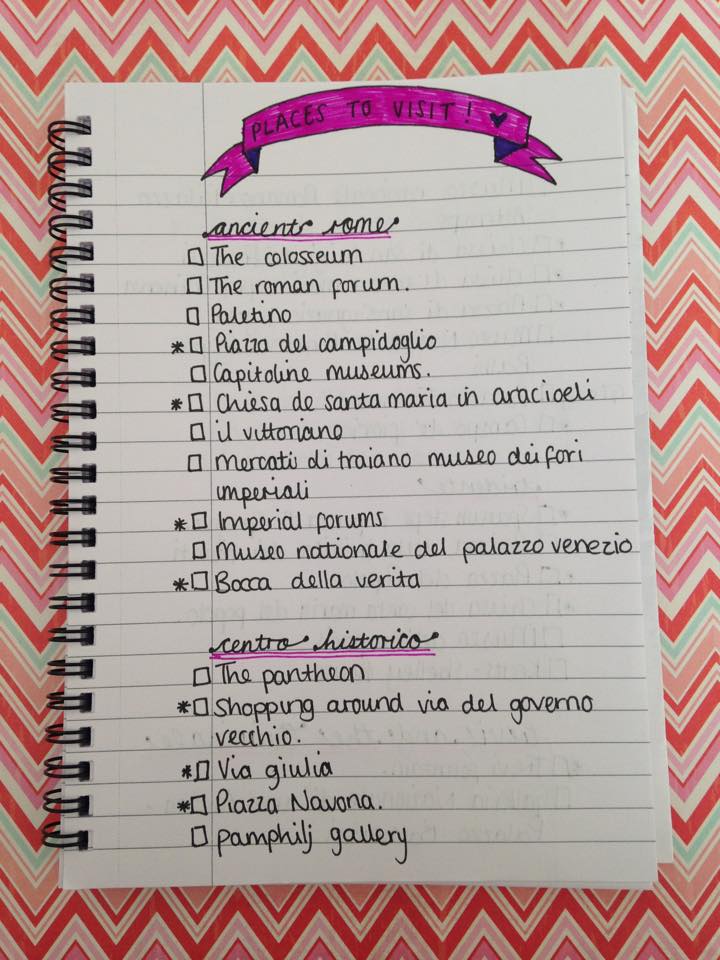 PLACES TO VISIT! ♥
ancient rome
□ The colosseum
□ The roman forum.
□ Paletino
*□ Piazza del campidoglio
□ Capitoline museums.
*□ Chiesa de santa maria in aracioeli
□ il vittoriano
□ Mercati di traiano museo dei fori
imperiali
*□ Imperial forums
□ Museo nationale del palazzo venezio
*□ Bocca della verita
centro historico
□ The pantheon
*□ Shopping around via del governo
vecchio.
*□ Via giulia
*□ Piazza Navona.
□ pamphilj gallery